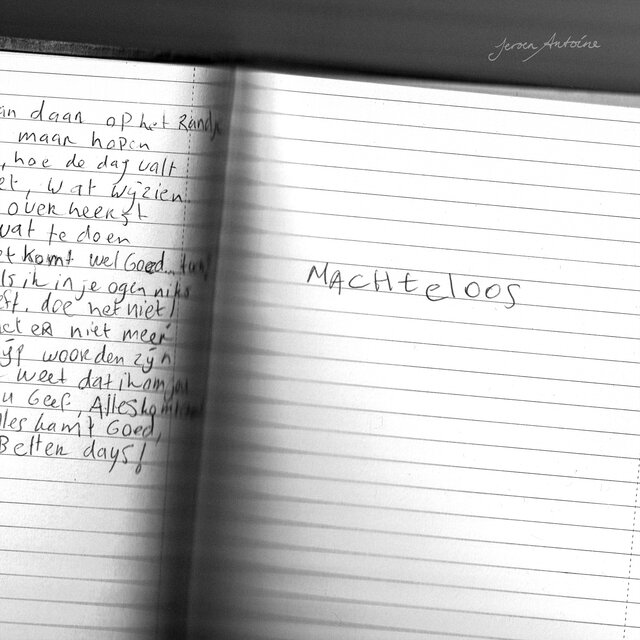 Jeroen Antoine
an daan op het Randje
maar hopen
, hoe de dag valt
et, wat wij zien
overheerst
wat te doen
et komt wel Goed..
ls ik in je ogen niks
eft, doe het niet!
et er niet meer
woorden zijn
weet dat ik om jou
u Geef, Alles
lles komt Goed,
Better days!
MACHteloos